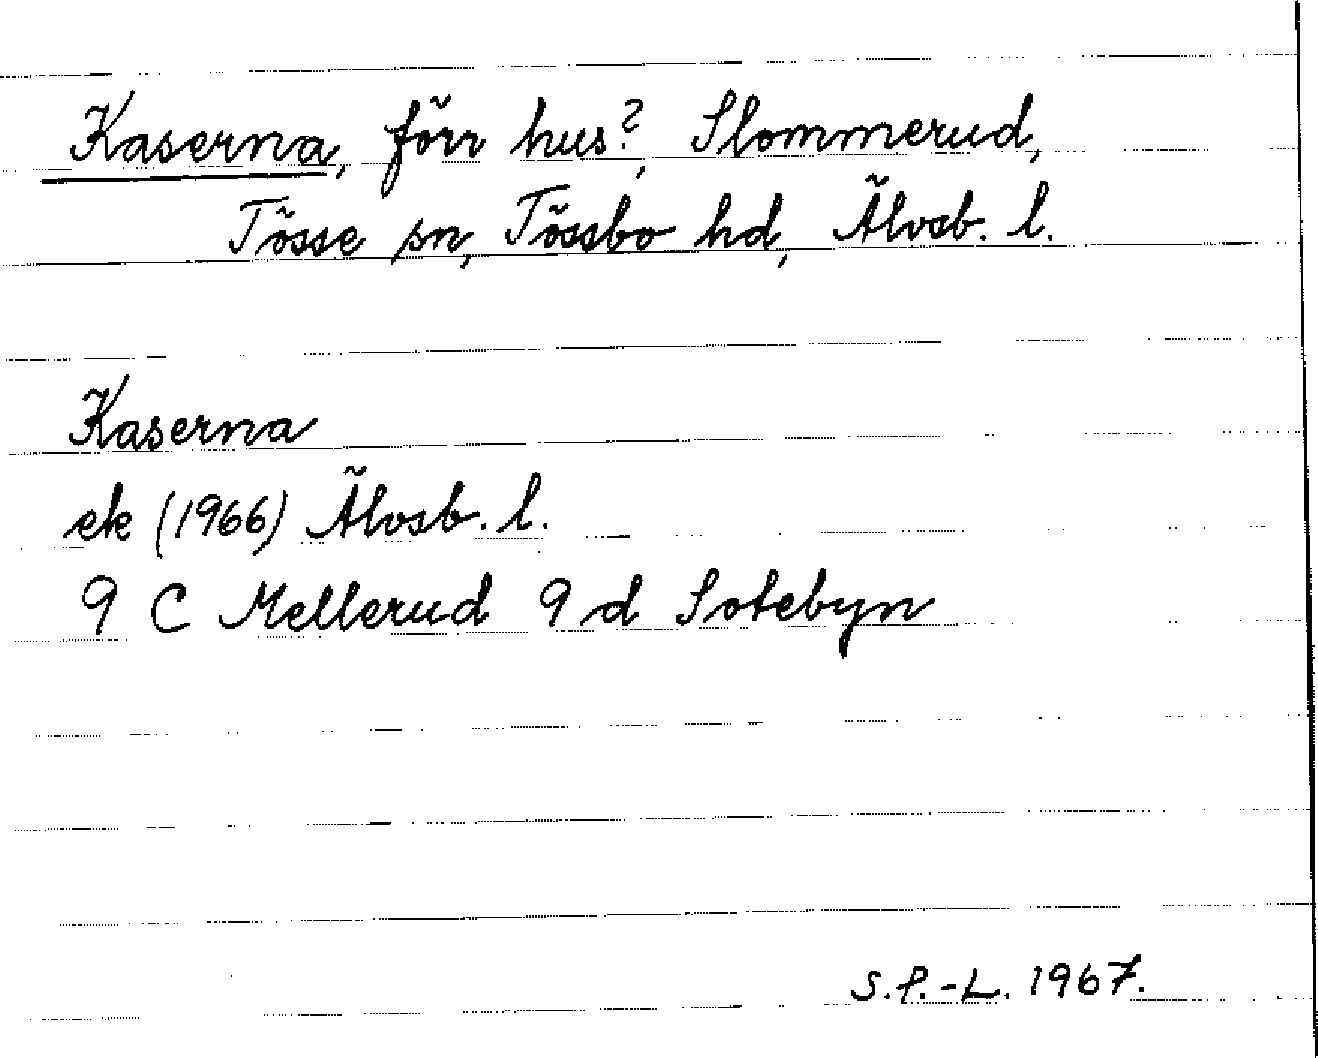 Kaserna, förr hus?, Slommerud,
Tösse sn, Tössbo hd, Älvsb. l.
Kaserna
ek (1966) Älvsb. l.
9 C Mellerud 9 d Sotebyn
S.P.-L. 1967.